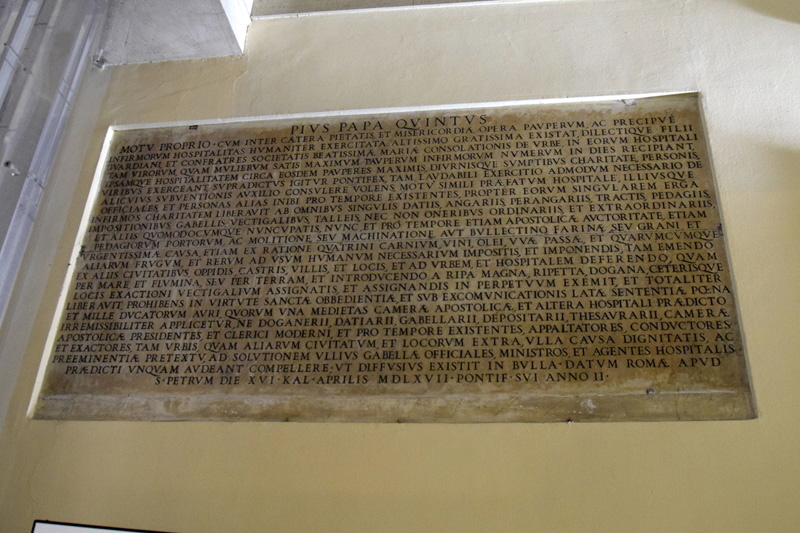 PIVS PAPA QVINTVS
MOTV PROPRIO · CVM INTER CÆTERA PIETATIS, ET MISERICORDIÆ OPERA PAVPERVM, AC PRECIPVÈ
INFIRMORVM HOSPITALITAS HVMANITER EXERCITATA, ALTISSIMO GRATISSIMA EXISTAT, DILECTIQVE FILII
GVARDIANI, ET CONFRATRES SOCIETATIS BEATISSIMÆ MARIÆ CONSOLATIONIS DE VRBE, IN EORVM HOSPITALI
TAM VIRORVM, QVAM MVLIERVM SATIS MAXIMVM PAVPERVM INFIRMORVM NVMERVM IN DIES RECIPIANT,
IPSAMQVE HOSPITALITATEM CIRCA EOSDEM PAVPERES MAXIMIS, DIVRNISQVE SVMPTIBVS CHARITATE, PERSONIS,
VIRIBVS EXERCEANT, SVPRADICTVS IGITVR PONTIFEX, TAM LAVDABILI EXERCITIO ADMODVM NECESSARIO DE
ALICVIVS SVBVENTIONIS AVXILIO CONSVLERE VOLENS, MOTV SIMILI PRÆFATVM HOSPITALE, ILLIVSQVE
OFFICIALES ET PERSONAS ALIAS INIBI PRO TEMPORE EXISTENTES, PROPTER EORVM SINGVLAREM ERGA
INFIRMOS CHARITATEM LIBERAVIT AB OMNIBVS SINGVLIS DATIIS, ANGARIIS, PERANGARIIS, TRACTIS, PEDAGIIS,
IMPOSITIONIBVS GABELLIS VECTIGALIBVS, TALLEIS, NEC NON ONERIBVS ORDINARIIS, ET EXTRAORDINARIIS,
ET ALIIS QVOMODOCVMQVE NVNCVPATIS, NVNC, ET PRO TEMPORE ETIAM APOSTOLICÆ AVCTORITATE, ETIAM
PEDAGIORVM PORTORVM, AC MOLITIONE, SEV MACHINATIONE, AVT BVLLECTINO FARINÆ, SEV GRANI ET
VRGENTISSIMÆ CAVSA, ETIAM EX RATIONE QVATRINI CARNIVM, VINI, OLEI, VVÆ PASSÆ, ET QVARVMCVMQVE
ALIARVM FRVGVM, ET RERVM AD VSVM HVMANVM NECESSARIVM IMPOSITIS, ET IMPONENDIS, TAM EMENDO
EX ALIIS CIVITATIBVS OPPIDIS, CASTRIS, VILLIS, ET LOCIS, ET AD VRBEM, ET HOSPITALEM DEFERENDO, QVAM
PER MARE, ET FLVMINA, SEV PER TERRAM, ET INTRODVCENDO A RIPA MAGNA, RIPETTA, DOGANA, CETERISQVE
LOCIS EXACTIONI VECTIGALIVM ASSIGNATIS, ET ASSIGNANDIS IN PERPETVVM EXEMIT, ET TOTALITER
LIBERAVIT, PROHIBENS IN VIRTVTE SANCTÆ OBBEDIENTIÆ, ET SVB EXCOMVNICATIONIS LATÆ SENTENTIÆ PŒNA
ET MILLE DVCATORVM AVRI, QVORVM VNA MEDIETAS CAMERÆ APOSTOLICÆ, ET ALTERA HOSPITALI PRÆDICTO
IRREMISSIBILITER APPLICETVR, NE DOGANERII, DATIARII, GABELLARII, DEPOSITARII, THESAVRARII, CAMERÆ
APOSTOLICÆ PRESIDENTES, ET CLERICI MODERNI, ET PRO TEMPORE EXISTENTES, APPALTATORES, CONDVCTORES
ET EXACTORES, TAM VRBIS, QVAM ALIARVM CIVITATVM, ET LOCORVM EXTRA, VLLA CAVSA DIGNITATIS, AC
PREEMINENTIÆ PRETEXTV, AD SOLVTIONEM VLLIVS GABELLÆ OFFICIALES, MINISTROS, ET AGENTES HOSPITALIS
PRÆDICTI VNQVAM AVDEANT COMPELLERE · VT DIFFVSIVS EXISTIT IN BVLLA · DATVM ROMÆ APVD
S · PETRVM DIE XVI · KAL · APRILIS MDLXVII · PONTIF · SVI ANNO II ·